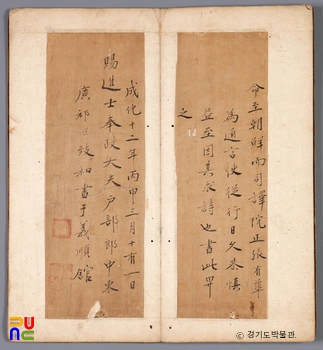 命至朝鮮而司譯院正張有華
為通言使從行日久恭慎
益至因其求詩也書此畀
之
成化十二年丙申三月十有一日
賜進士奉政大夫戶部郎中東
廣祁順致和書于義順館
PUNC
© 경기도박물관